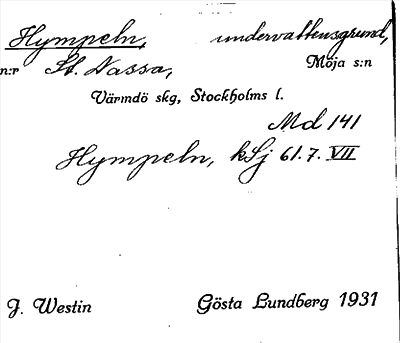 Hympeln, undervattensgrund,
n:r St. Nassa, Möja s:n
Värmdö skg, Stockholms l.
Md 141
Hympeln, kSj 61.7. VII
J. Westin Gösta Lundberg 1931